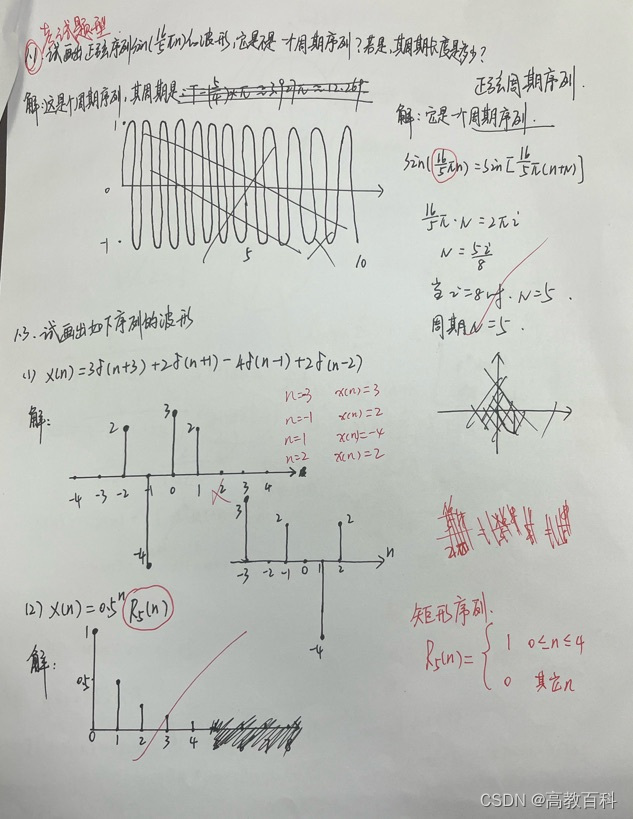 考试题型
1.1 试画出正弦序列sin(16/5 πn)的波形,它是否是一个周期序列?若是,其周期长度是多少?
解:这是个周期序列,其周期是
正弦周期序列.
解:它是一个周期序列.
sin(16/5 πn)=sin[16/5 π(n+N)]
16/5 π·N=2πi
N=5i/8
当i=8时.N=5.
周期N=5.
1
0
-1
5
10
1.3.试画出如下序列的波形
(1) x(n)=3δ(n+3)+2δ(n+1)-4δ(n-1)+2δ(n-2)
解:
n=-3 x(n)=3
n=-1 x(n)=2
n=1 x(n)=-4
n=2 x(n)=2
2 3 2
-4 -3 -2 -1 0 1 2 3 4
-4
3 2 2
-3 -2 -1 0 1 2 n
-4
(2) x(n)=0.5ⁿR₅(n)
解:
1
0.5
0 1 2 3 4
矩形序列.
R₅(n)={ 1 0≤n≤4
0 其它n
CSDN @高教百科